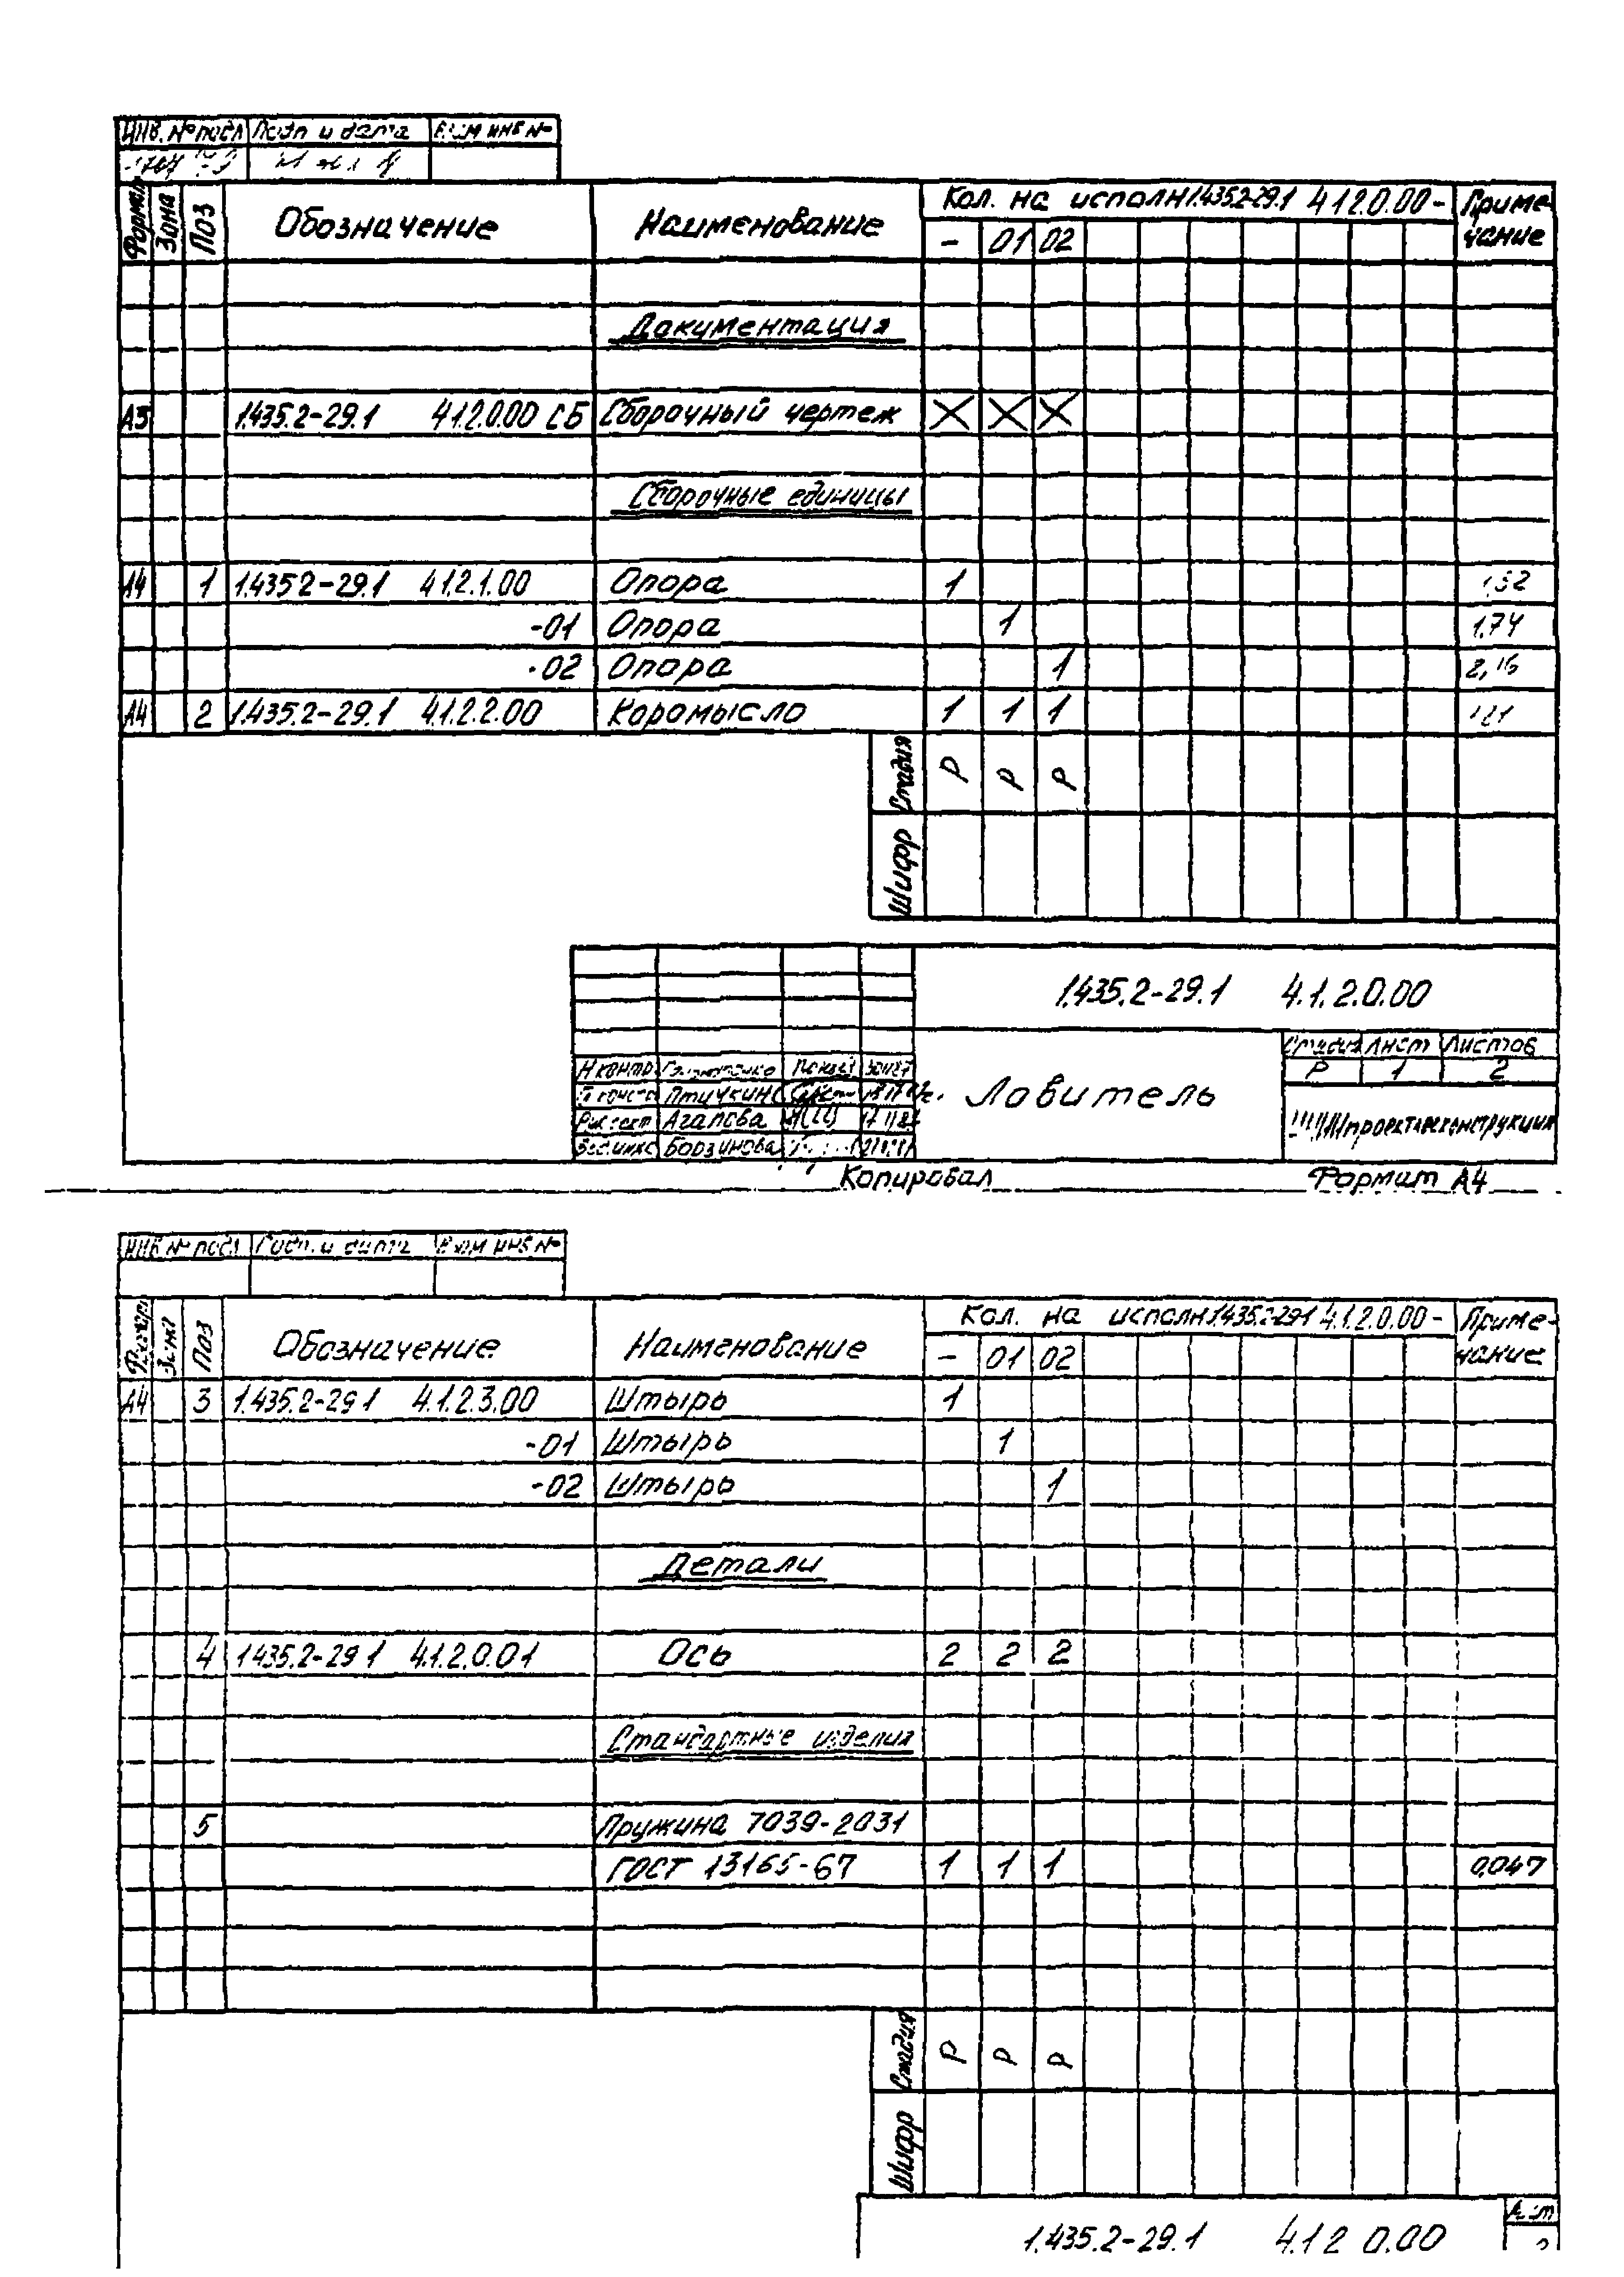 Инв. № подл Подп и дата Взам инв №
Формат Зона Поз Обозначение Наименование Кол. на исполн 1.435.2-29.1 4.1.2.0.00- Приме-
чание
- 01 02
Документация
А3 1.435.2-29.1 4.1.2.0.00 СБ Сборочный чертеж X X X
Сборочные единицы
А4 1 1.435.2-29.1 4.1.2.1.00 Опора 1
-01 Опора 1 1,74
-02 Опора 1 2,16
А4 2 1.435.2-29.1 4.1.2.2.00 Коромысло 1 1 1
Стадия Р Р Р
Шифр
1.435.2-29.1 4.1.2.0.00
Стадия Лист Листов
Р 1 2
Н контр
Птичкин
Ловитель
Рук сект Агапова
Вед инж Борзинова
Копировал Формат А4
Инв № подл Подп. и дата Взам инв №
Формат Зона Поз Обозначение Наименование Кол. на исполн 1.435.2-29.1 4.1.2.0.00- Приме-
чание
- 01 02
А4 3 1.435.2-29.1 4.1.2.3.00 Штырь 1
-01 Штырь 1
-02 Штырь 1
Детали
4 1.435.2-29.1 4.1.2.0.01 Ось 2 2 2
Стандартные изделия
5 Пружина 7039-2031
ГОСТ 13165-67 1 1 1 0,047
Стадия Р Р Р
Шифр
1.435.2-29.1 4.1.2.0.00